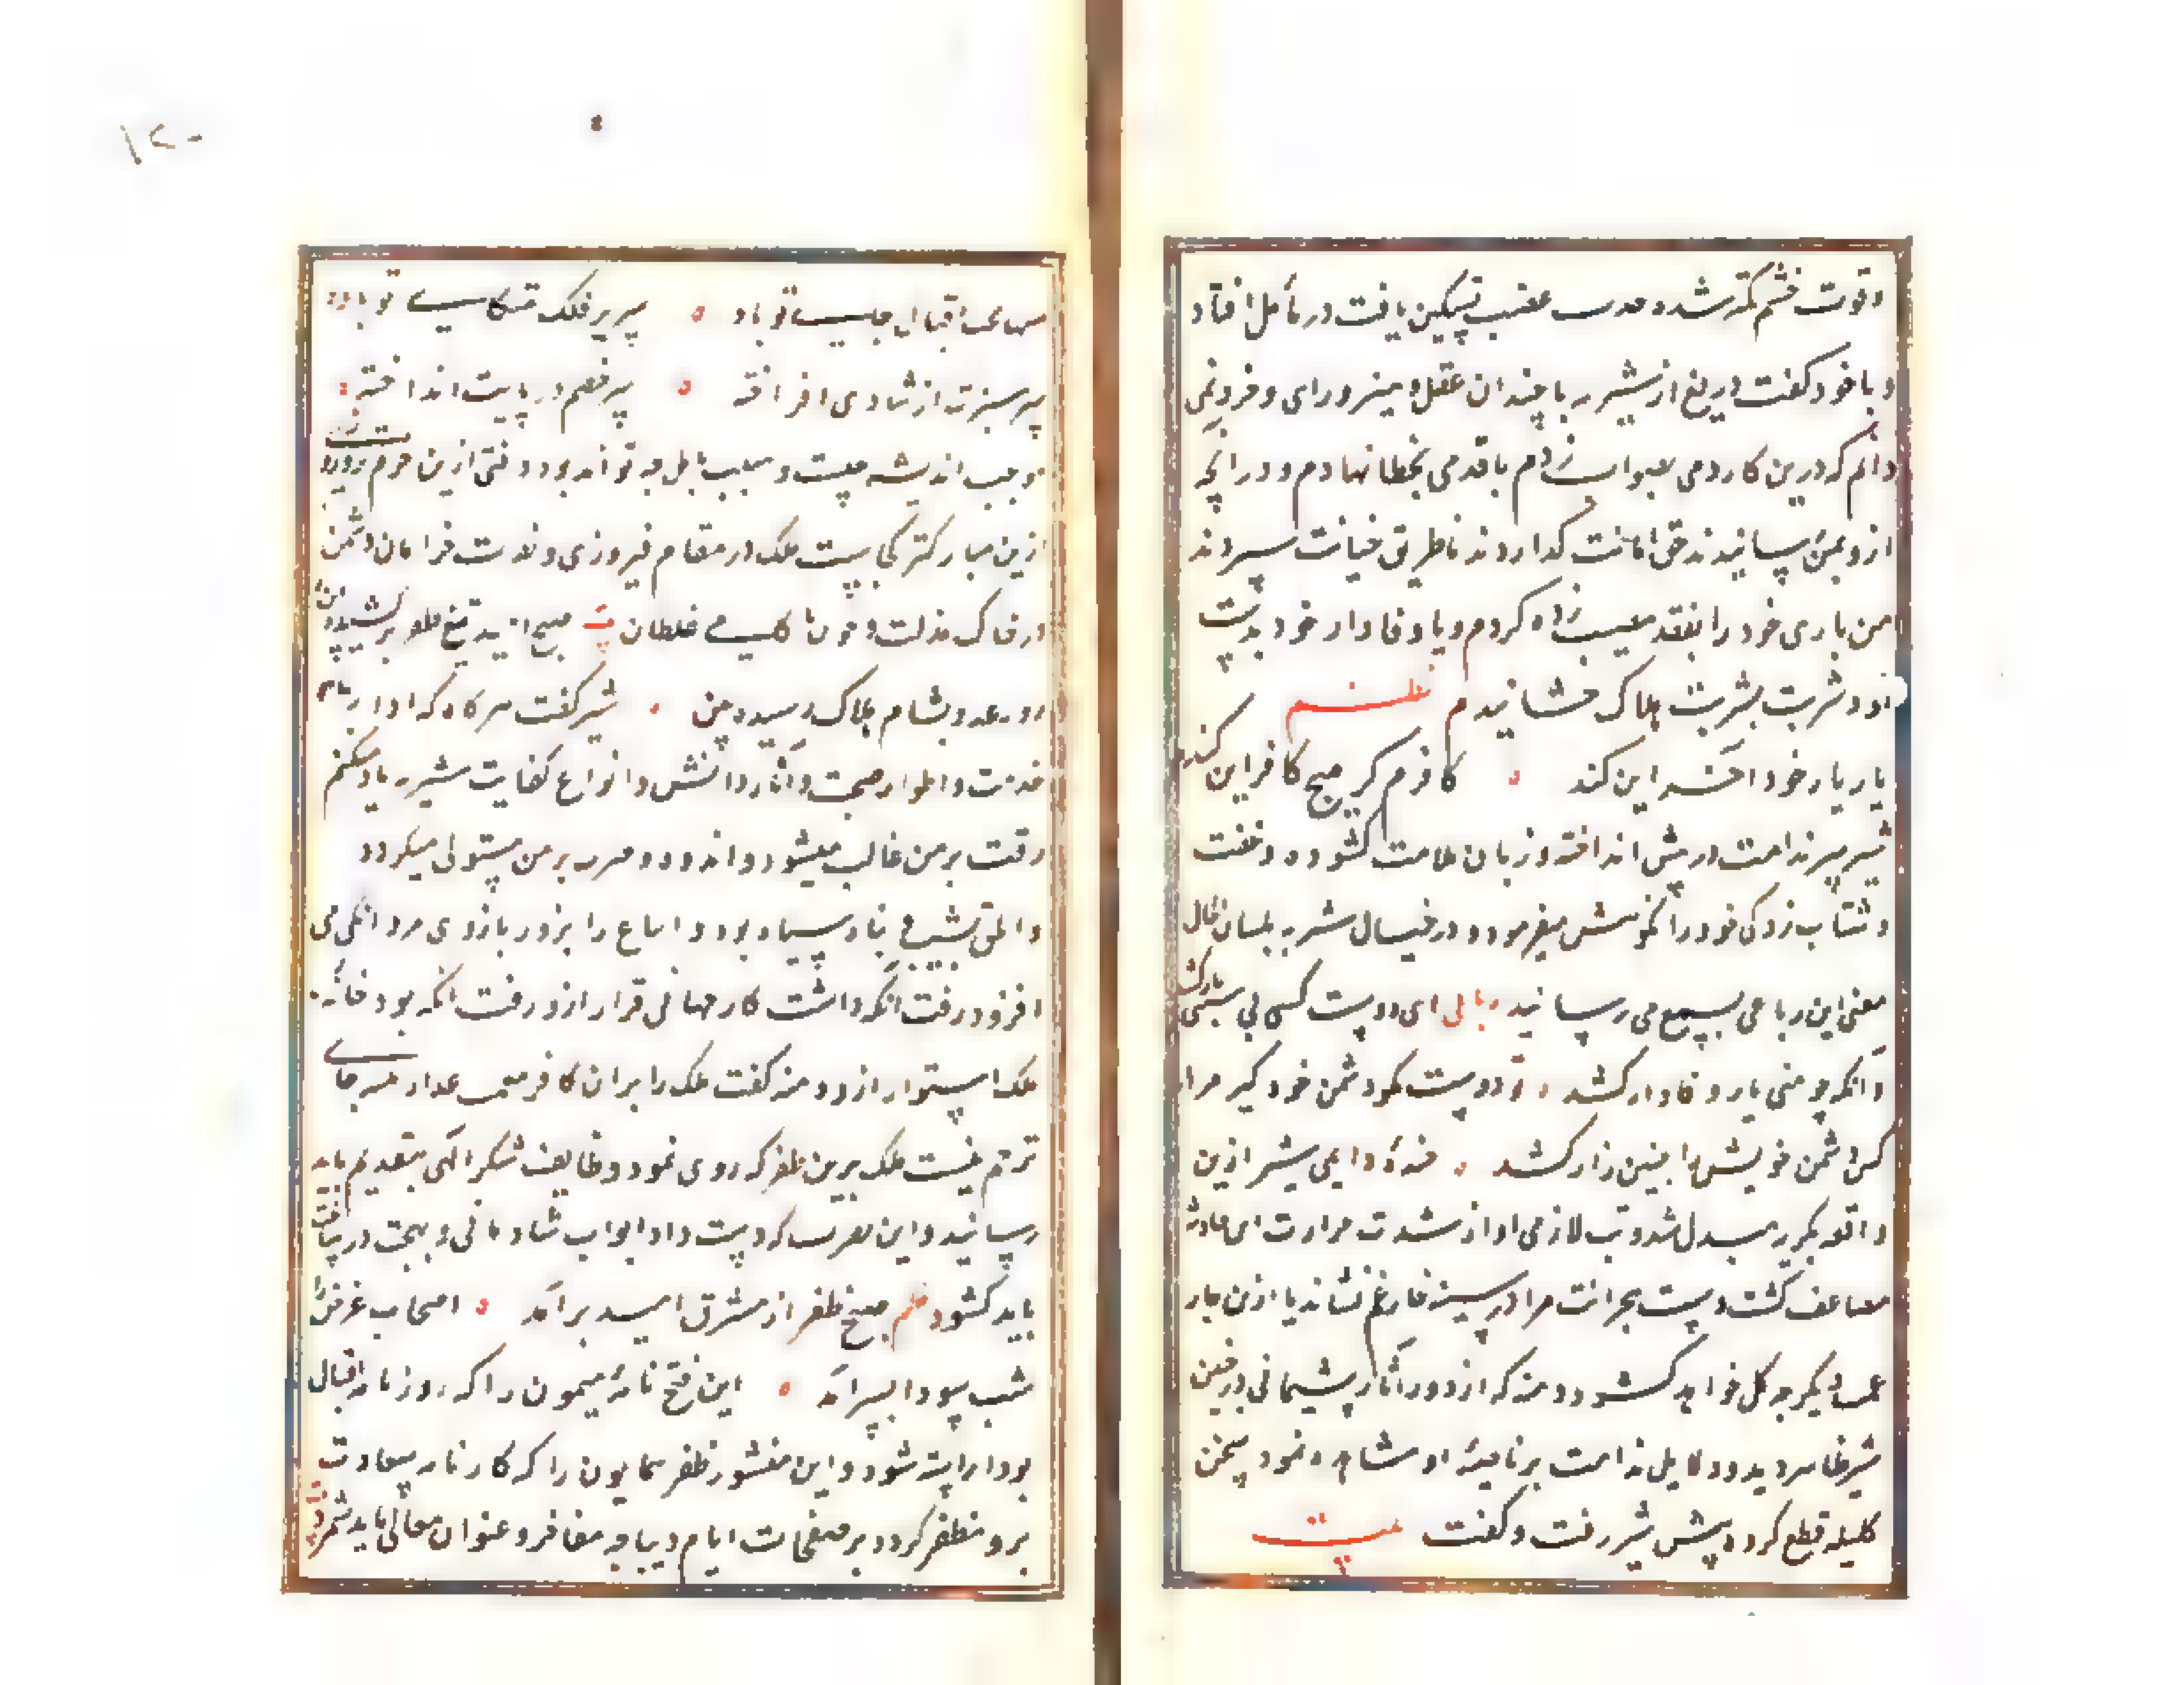 وقوت خشم کمتر شد و حدت غضب تسکین یافت در تأمل افتاد
و با خود گفت دریغ از شنزبه با چندان عقل و هنر و رای و خرد نمی
دانم که درین کار دمی بصواب زدم یا قدمی بخطا نهادم و در آنچه
ازو بمن رسانیدند حق امانت گذاردند یا طریق خیانت سپردند
من باری خود را بفقد مصیبت زده کردم و یار وفادار خود بدست
خود شربت هلاک چشانیدم نظم
یار یار خود آخر این کند کافرم گر هیچ کافر این کند
شیر سر ندامت در پیش انداخته و زبان ملامت گشوده و خفت
و شتاب زدگی خود را نکوهش میفرمود و در خیال شنزبه بلسان حال
معنی این رباعی بسمع می رسانید رباعی ای دوست کسی بی سببی یار کشد
وانگه چو منی یار وفادار کشد تو دوست نکو دشمن خود گیر مرا
کس دشمن خویش را چنین زار کشد خنده دایمی شیر ازین
واقعه بگریه مبدل شد و تب لازمی او از شدت حرارت این حادثه
مضاعف گشت
شیر ظاهر دید و دلایل ندامت بر ناصیه او مشاهده نمود سخن
کلیله قطع کرد و پیش شیر رفت و گفت بیت
۱۲۰
همای اقبال جلیس تو باد سریر فلک متکای تو باد
سر سبزت از شادی افراخته سر خصم در پایت انداخته
موجب اندیشه چیست و سبب تامل چه تواند بود وقتی ازین خرم تر و روزی
ازین مبارکتر کجاست ملک در مقام فیروزی و نصرت خرامان و دشمن
در خاک مذلت و خون ناکامی غلطان بیت صبح امید تیغ ظفر برکشید
روز عدو بشام هلاک رسیده بین شیر گفت هرگاه که آداب
خدمت و اطوار صحبت و آثار دانش و انواع کفایت شنزبه یاد میکنم
رقت بر من غالب میشود و اندوه و حسرت بر من مستولی میگردد
و الحق پشت و پناه سپاه بود و اتباع را بزور بازوی مردانگی می
افزود رفت آنکه داشت کار جهانی قرار ازو رفت آنکه بود خانه
ملک استوار ازو دمنه گفت ملک را بر آن کافر نعمت غدار جای
ترحم نیست ملک برین ظفر که روی نمود وظایف شکر الهی بتقدیم باید
رسانید و این نصرت که دست داد ابواب شادمانی و بهجت در ساحت
باید گشود نظم صبح ظفر از مشرق امید برآمد اصحاب غرض را
شب سودا بسر آمد این فتح نامه میمون را که روزنامه اقبال
بدو آراسته شود و این منشور ظفر همایون را که کارنامه سعادت
بدو مظفر گردد بر صفحات ایام دیباچه مفاخر و عنوان معالی باید شمرد